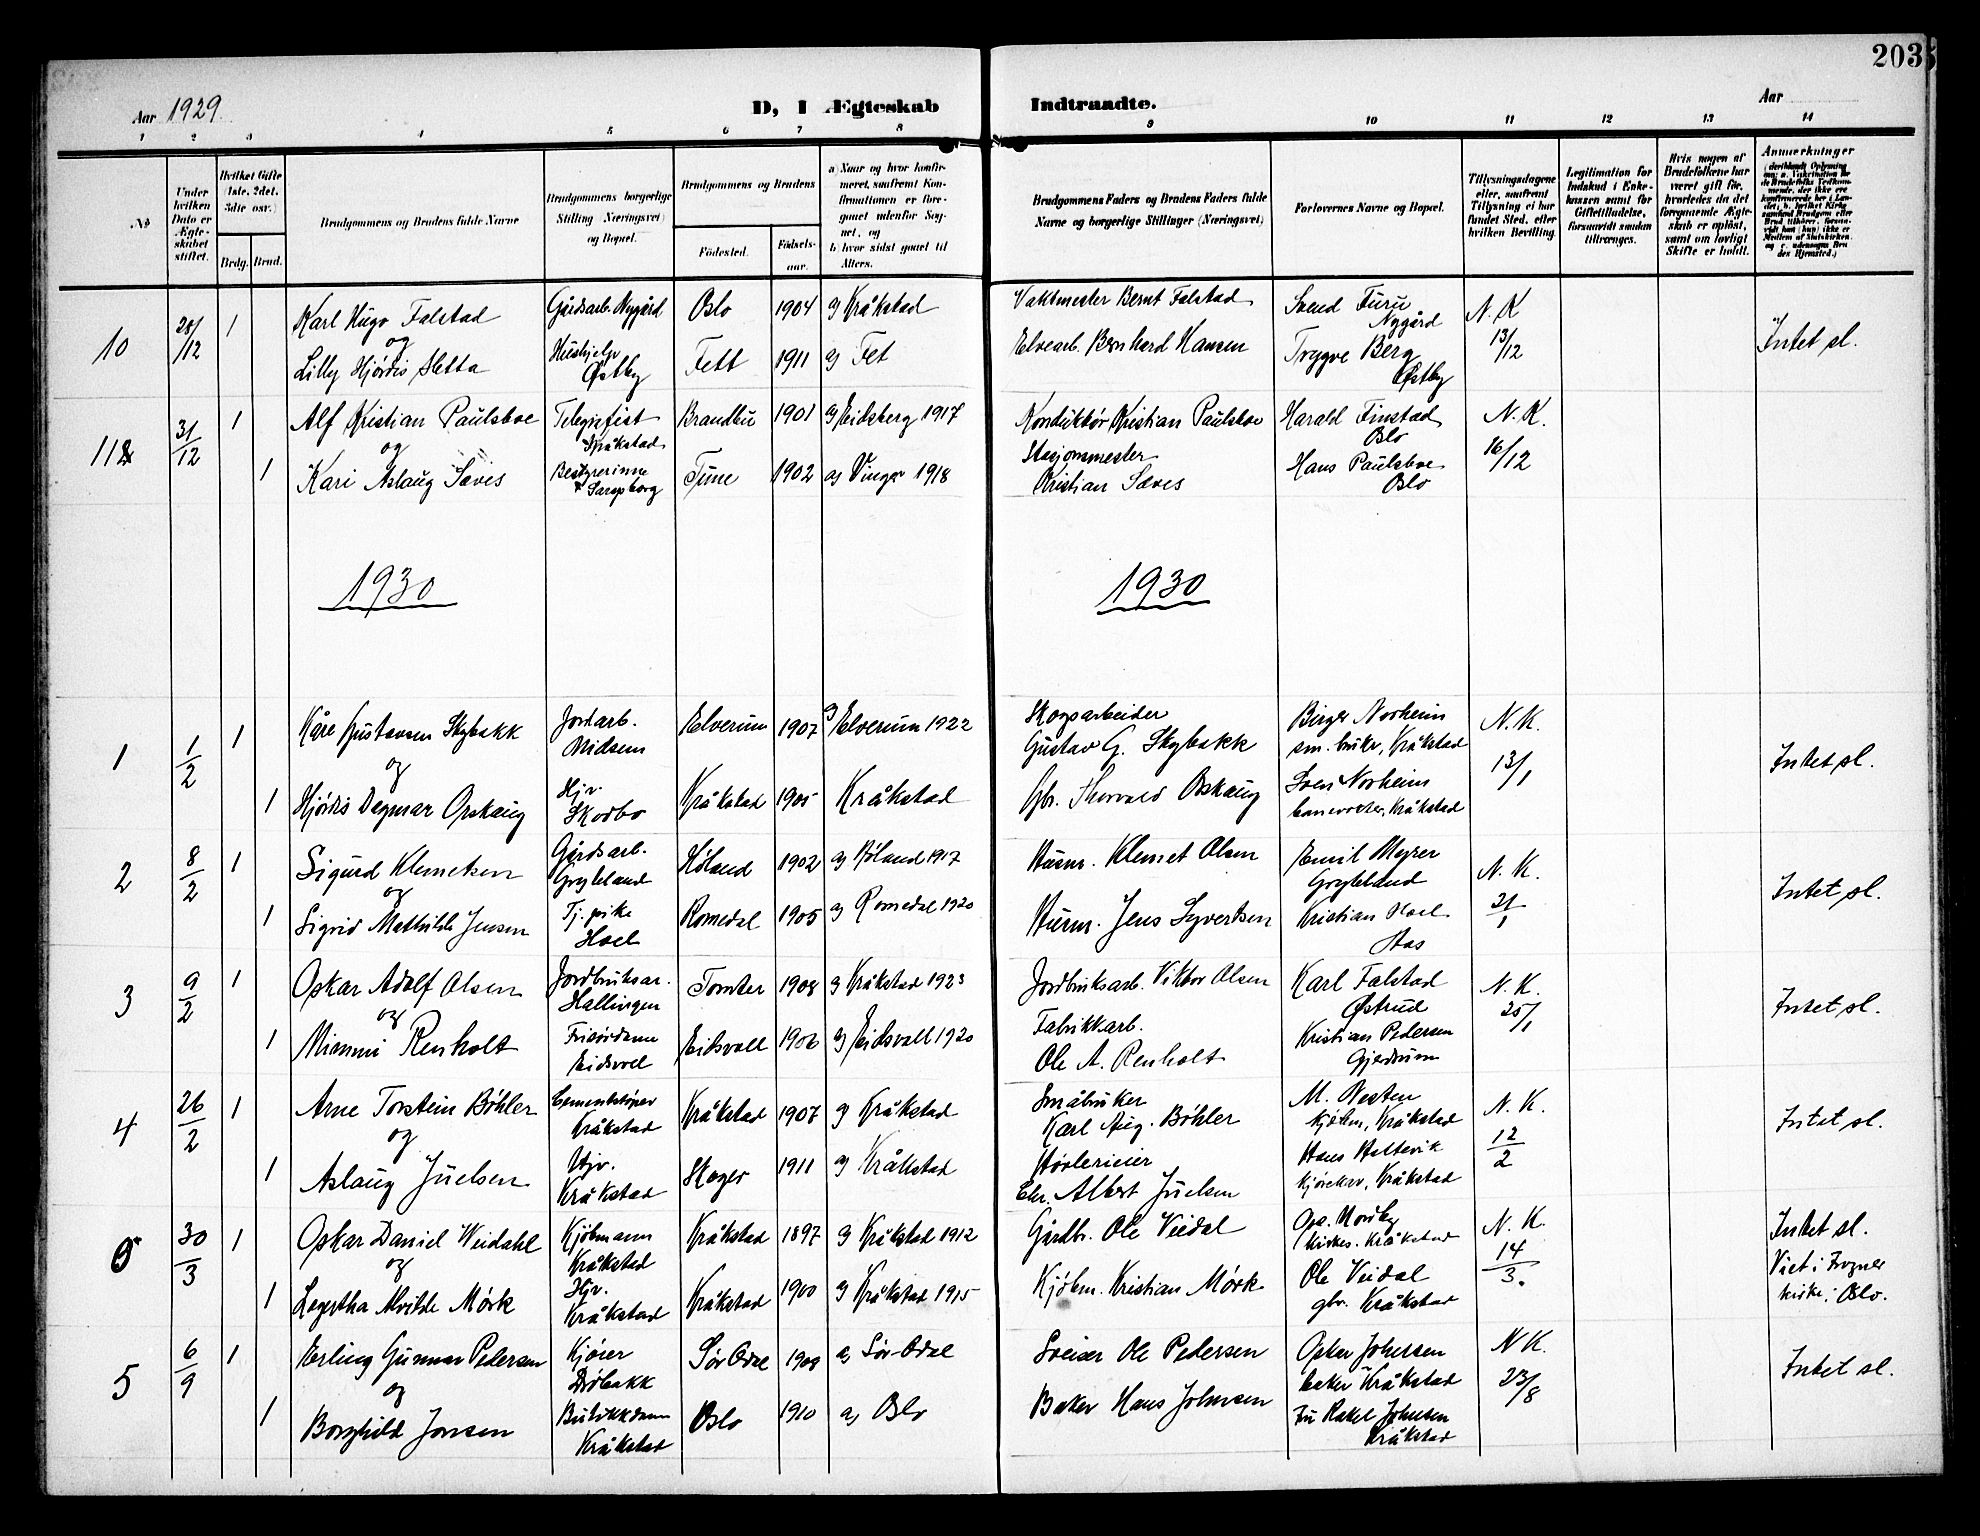 203
Aar 1929
D, I Ægteskab
Indtraadte.
Aar
1 2 3 4 5 6 7 8 9 10 11 12 13 14
No
Under hvilken Dato er Ægteskabet stiftet.
Hvilket Gifte (1ste, 2det, 3die osv.)
Brdg. Brud.
Brudgommens og Brudens fulde Navne
Brudgommens borgerlige Stilling (Næringsvei) og Bopæl.
Brudgommens og Brudens
Fødested.
Fødselsaar.
a) Naar og hvor konfirmeret, saafremt Konfirmationen er foregaaet udenfor Sognet, og
b) hvor sidst gaaet til Alters.
Brudgommens Faders og Brudens Faders fulde Navne og borgerlige Stillinger (Næringsvei)
Forlovernes Navne og Bopæl.
Tillysningsdagene eller, saafremt Tillysning ei har fundet Sted, efter hvilken Bevilling.
Legitimation for Indskud i Enkekassen samt for Giftetilladelse, forsaavidt saadan tiltrænges.
Hvis nogen af Brudefolkene har været gift før, hvorledes da det foregaaende Ægteskab er opløst, samt om lovligt Skifte er holdt.
Anmerkninger
10 28/12 1 Karl Hugo Falstad Gårdsarb. Nygård Oslo 1904 a) Kråkstad Vaktmester Bernt Falstad Svend Furu Nygård N. K 13/12 Intet sl.
og
Lilly Hjórdis Sletta Húshjelp Østby Fett 1911 a) Fet Elvearb. Bernhard Hansen Trygve Berg Østby
11 31/12 1 Alf Kristian Paulsboe Telegrafist Kråkstad Brandbu 1901 a) Eidsberg 1917 Konduktör Kristian Paulsboe Harald Finstad Oslo N. K. 16/12
og
1 Kari Aslaug Sæves Bestyrerinne Sarpsborg Tune 1902 a) Vinger 1918 Stasjonsmester Kristian Sæves Hans Paulsboe Oslo
1930
1930
1 1/2 1 Kåre Gustavsen Skybakk Jordarb. Midsem Elverum 1907 a) Elverum 1922 Skogsarbeider Gustav G. Skybakk Birger Norheim sm. bruker, Kråkstad N. K. 13/1 Intet sl.
og
1 Hjórdis Dagmar Opskaug Hjv. Skodbo Kråkstad 1905 Kråkstad Gbr. Thorvald Oskaug Sven Norheim banevokter, Kråkstad
2 8/2 1 Sigurd Klemetsen Gårdsarb. Gryteland Høland 1902 a) Høland 1917 Husm. Klemet Olsen Emil Myrer Gryteland N. K. 21/1 Intet sl.
og
1 Sigrid Mathilde Jensen Tj. pike Hoel Romedal 1905 a) Romedal 1920 Husm. Jens Syvertsen Kristian Hoel Aas
3 9/2 1 Oskar Adolf Olsen Jordbruksar. Hallingen Tomter 1908 a) Kråkstad 1923 Jordbruksarb. Viktor Olsen Karl Falstad Østrud N. K. 25/1 Intet sl.
og
1 Mimmi Renholt Frisördame Eidsvoll Eidsvoll 1906 a) Eidsvoll 1920 Fabrikkarb. Ole A. Renholt Kristian Pedersen Gjerdrum
4 26/2 1 Arne Torstein Böhler Cementstöper Kråkstad Kråkstad 1907 a) Kråkstad Småbruker Karl Aug. Böhler M. Nesten kjöbm, Kråkstad N. K. 12/2 Intet sl.
og
1 Aslaug Juelsen Hjv. Kråkstad Skoger 1911 a) Kråkstad Hövlerieier Chr. Albert Juelsen Hans Holtevik Kråkstad
5 30/3 1 Oskar Daniel Weidahl Kjöbmann Kråkstad Kråkstad 1897 a) Kråkstad 1912 Gårdbr. Ole Veidal Osc. Nordby kirkes. Kråkstad N. K. 14/3. Intet sl.
Viet i Frogner kirke i Oslo.
og
1 Lagertha Alvilde Mörk Hjv. Kråkstad Kråkstad 1900 a) Kråkstad 1915 Kjöbm. Kristian Mörk Ole Veidal gbr. Kråkstad
5 6/9 1 Erling Gunnar Pedersen Dröbakk Sör Odal 1908 a) Sör-Odal Sveiser Ole Pedersen Oskar Johnsen baker Kråkstad N K. 23/8 Intet sl.
og
1 Borghild Jonsen Butikkdame Kråkstad Oslo 1910 a) Oslo Baker Hans Johnsen Fru Rakel Johnsen Kråkstad